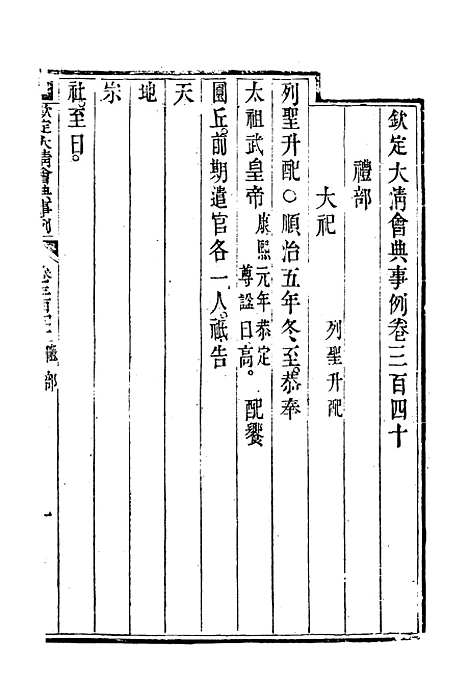 欽定大清會典事例卷三百四十
禮部
大祀 列聖升配
列聖升配○順治五年冬至恭奉
太祖武皇帝康熙元年恭定尊諡曰高。配饗
圜丘。前期遣官各一人。祗告
天
地
宗
社。至日。
欽定大清會典事例 禮部 一